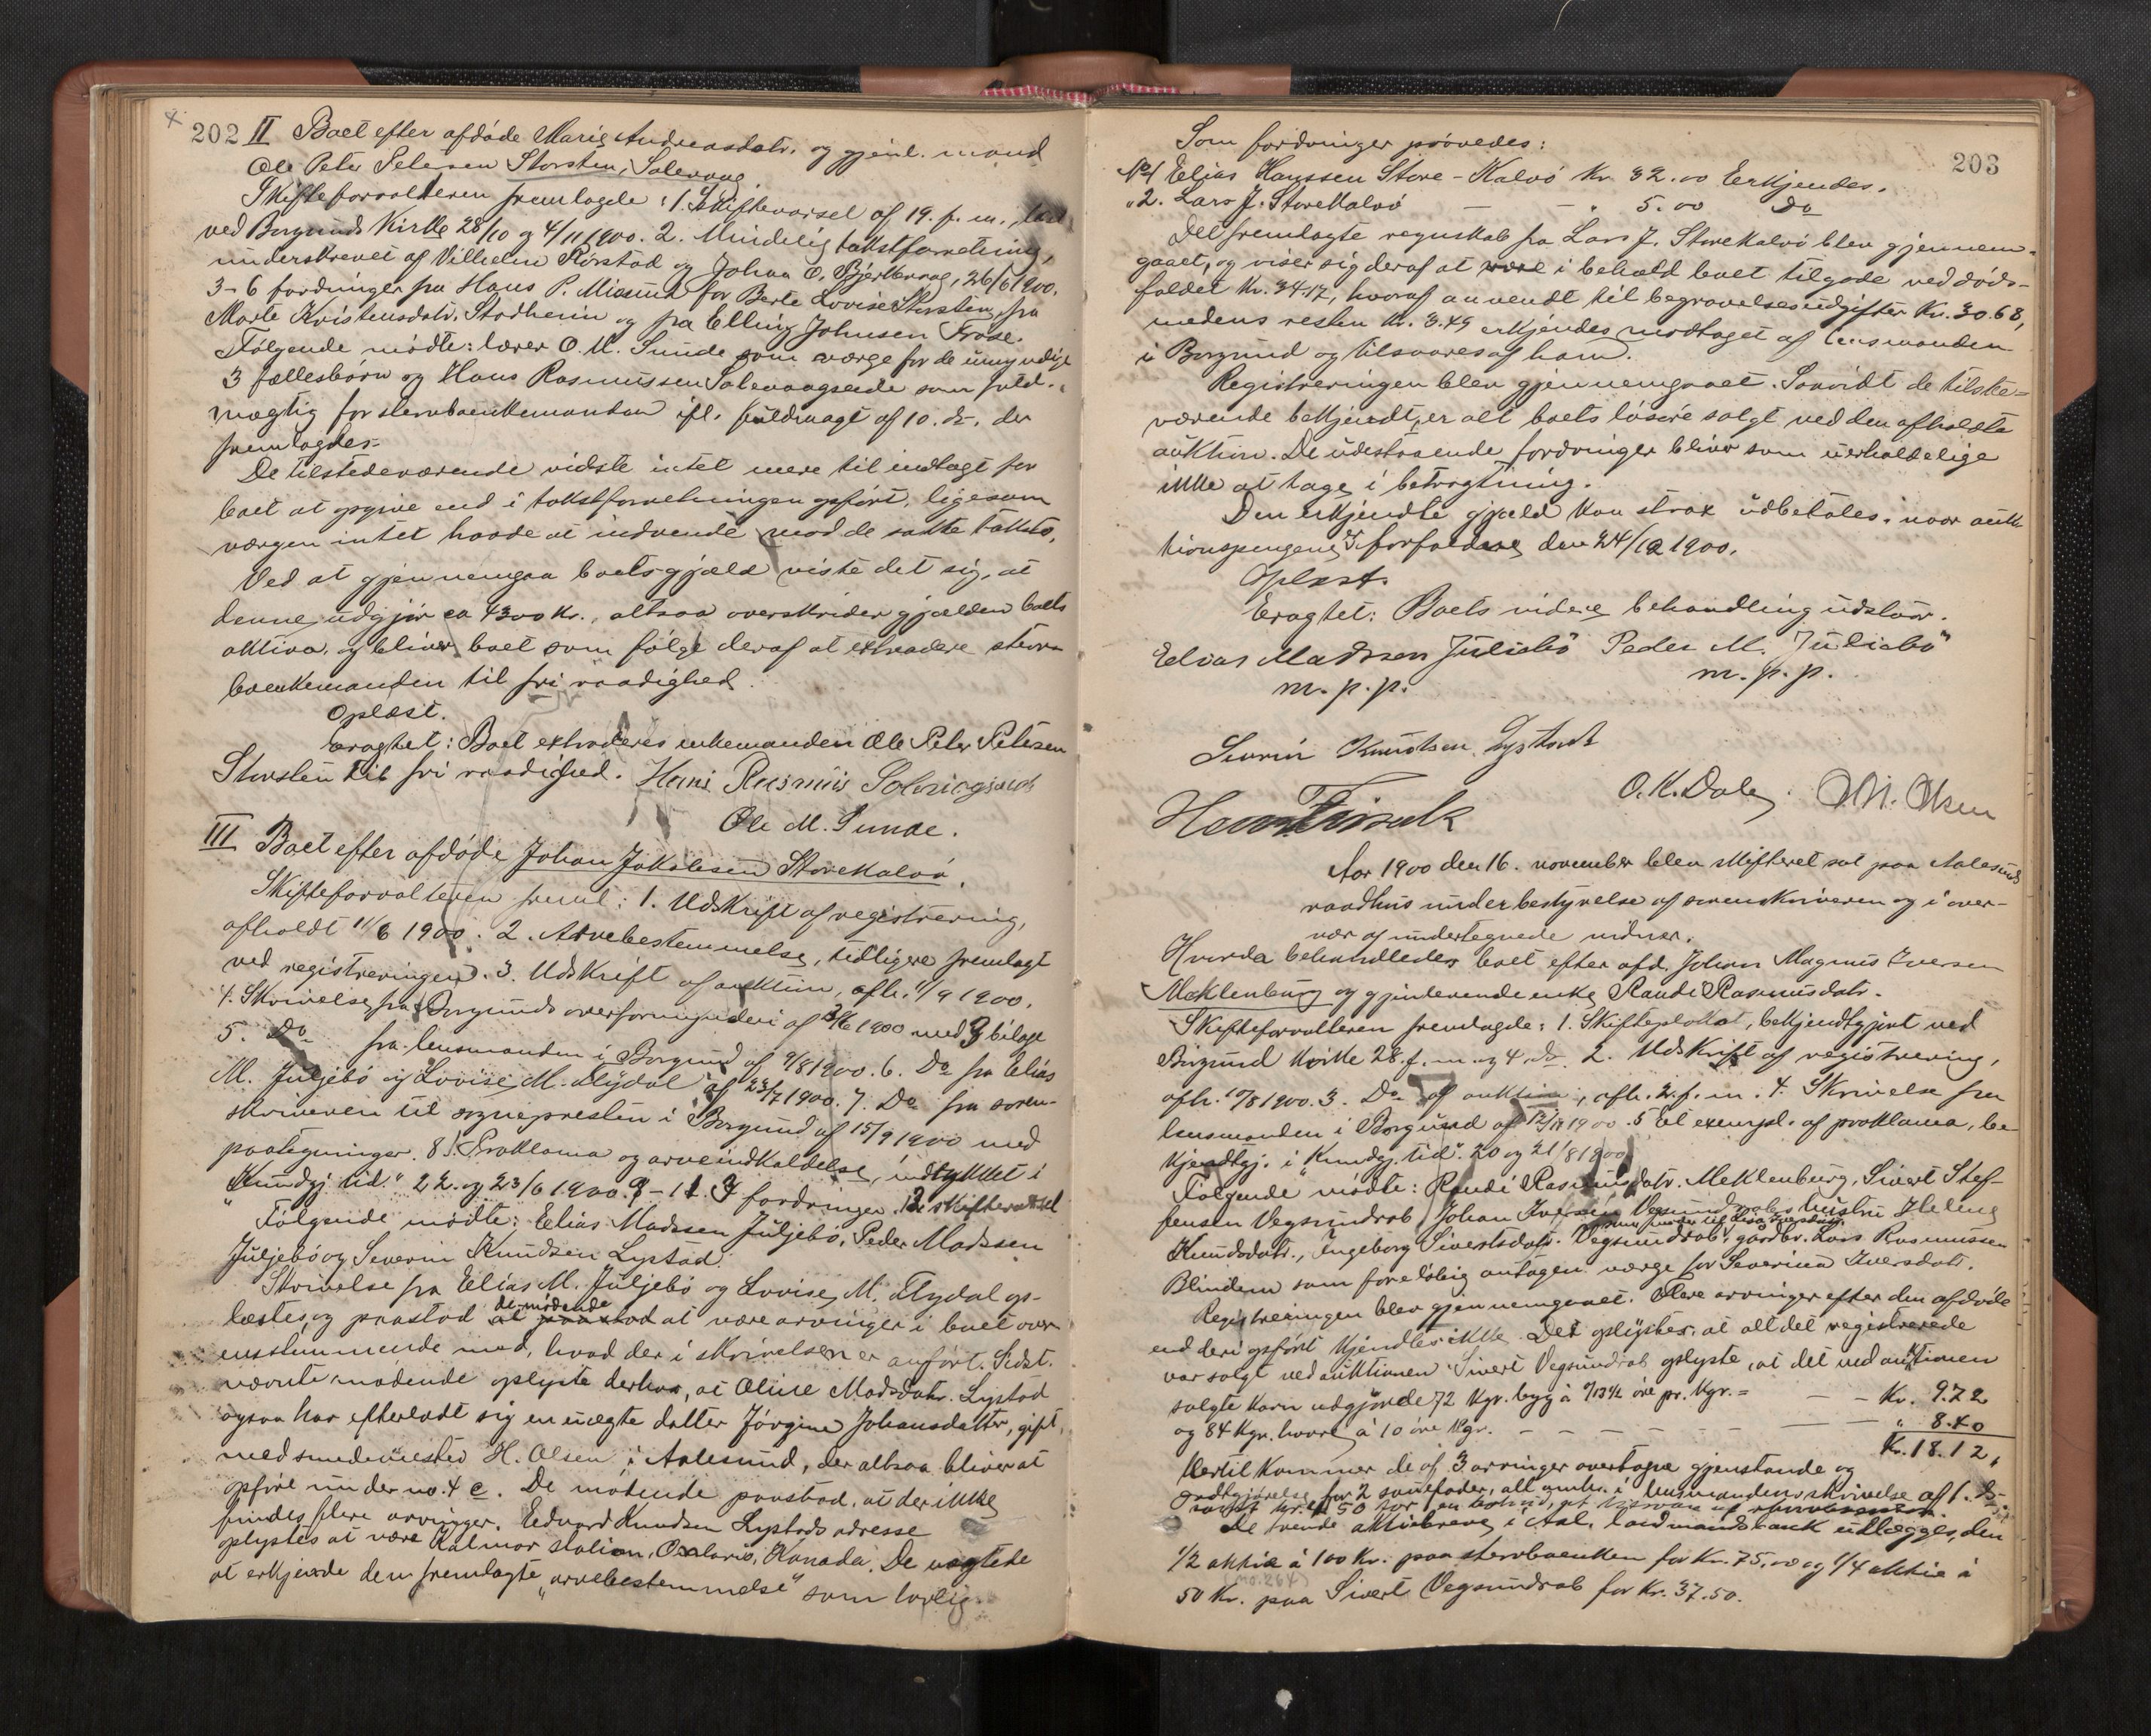 202 II Boet efter afdøde Marie Andreasdatr. og gjenl. mand
Ole Peter Petersen Storsten, Solevaag.
Skifteforvalteren fremlagde: 1. Skiftevarsel af 19. f. m.,
ved Borgunds Kirke 28/10 og 4/11 1900. 2. Mindelig takstforretning,
underskrevet af Vilhelm Rørstad og Johan O. Bjerkevaag, 26/6 1900.
3-6 fordringer fra Hans P. Misund for Berte Lovise Storsten, fra
Marte Kristensdatr. Stadheim og fra Elling Johnsen Trose.
Følgende mødte: lærer O. M. Sunde som værge for de umyndige
3 fællesbørn og Hans Rasmussen Solevaagseide som fuld-
mægtig for sterboenkemanden ifl. fuldmagt af 10. ds. der
fremlagdes.
De tilstedeværende vidste intet mere til indtægt for
boet at opgive end i takstforretningen opført, ligesom
værgen intet havde at indvende mod de satte takster.
Ved at gjennemgaa boets gjæld viste det sig, at
denne udgjør ca 4300 kr., altsaa overskrider gjælden boets
aktiva, og bliver boet som følge deraf at extradere sterv-
boenkemanden til fri raadighed.
Oplæst.
Eragtet: Boet extraderes enkemanden Ole Peter Petersen
Storsten til fri raadighed. Hans Rasmus
Ole M. Sunde.
III Boet efter afdøde Johan Jakobsen Storekalvø.
Skifteforvalteren freml: 1. Udskrift af registrering,
afholdt 11/6 1900. 2. Arvebestemmelse, tidligere fremlagt
ved registreringen. 3. Udskrift af auktion, afh. 1/9 1900.
4. Skrivelse fra Borgunds overformynderi af 1900 med 3 bilage
5. Do fra lensmanden i Borgund af 9/8 1900. 6. Do fra Elias
M. Juljebø og Lovise M. Flydal af 23/7 1900. 7. Do fra soren-
skriveren til sognepresten i Borgund af 15/9 1900 med
paategninger. 8. Proklama og arveindkaldelse, indrykket i
"Kundgj. tid." 22. og 23/6 1900. 9-11. 3 fordringer. 12 skiftevarsel
Følgende mødte: Elias Madssen Juljebø, Peder Madssen
Juljebø og Severin Knudsen Lystad.
Skrivelse fra Elias M. Juljebø og Lovise M. Flydal op-
læstes, og paastod de mødende at være arvinger i boet over-
ensstemmende med, hvad der i skrivelsen er anført. Sidst-
nævnte mødende oplyste derhos, at Oline Madsdatr. Lystad
ogsaa har efterladt sig en uægte datter Jørgine Johansdatter, gift
med smedemester H. Olsen i Aalesund, der altsaa bliver at
opføre under no. 4 c. De mødende paastod, at der ikke
findes flere arvinger. Edvard Knudsen Lystads adresse
oplystes at være Kalmar station, Ontario, Kanada. De vægtede
at erkjende den fremlagte "arvebestemmelse" som lovlig.
203
Som fordringer prøvedes:
No 1 Elias Hanssen Store-Kalvø Kr. 32.00 Erkjendes.
" 2. Lars J. Storekalvø — — " 5.00 Do
Det fremlagte regnskab fra Lars J. Storekalvø blev gjennem-
gaaet, og viser sig deraf at være i behold boet tilgode ved døds-
faldet Kr. 34.17, hvoraf anvendt til begravelsesudgifter Kr. 30.68,
medens resten Kr. 3.49 erkjendes modtaget af lensmanden
i Borgund og tilsvares af ham.
Registreringen blev gjennemgaaet. Saavidt de tilstede-
værende bekjendt, er alt boets løsøre solgt ved den afholdte
auktion. De udestaaende fordringer bliver som uerholdelige
ikke at tage i betragtning.
Den erkjendte gjæld kan strax udbetales, naar auk-
tionspengene forfalder den 24/12 1900.
Oplæst.
Eragtet: Boets videre behandling udstaar.
Elias Madssen Juliebø Peder M. Juliebø
m. p. p. m. p. p.
Severin Knudsen Lystad
O. K. Dale. Olsen
Aar 1900 den 16. november blev skifteret sat paa Aalesunds
raadhus under bestyrelse af sorenskriveren og i over-
vær af undertegnede vidner.
Hvorda behandledes boet efter afd. Johan Magnus Iversen
Meklenburg og gjenlevende enke Randi Rasmusdatr.
Skifteforvalteren fremlagde: 1. Skifteplakat, bekjendtgjort ved
Borgund Kirke 28. f. m. og 4. ds. 2. Udskrift af registrering,
afh. 10/8 1900. 3. Do af auktion, afh. 2. f. m. 4. Skrivelse fra
lensmanden i Borgund af 1900. 5 Et exempl. af proklama, be-
kjendtgj. i "Kundgj. tid." 20 og 21/8 1900.
Følgende mødte: Randi Rasmusdatr. Meklenburg, Sivert Stef-
fensen Vegsundrab, Johan Iversen hustru Heline
Knudsdatr., Ingeborg Sivertsdatr. Vegsundrab, gardbr. Lars Rasmussen
Blindem som foreløbig antagen værge for Severina Iversdatr.
Registreringen blev gjennemgaaet. Flere arvinger efter den afdøde
end deri opført kjendtes ikke. Det oplystes, at alt det registrerede
var solgt ved auktionen. Sivert Vegsundrab oplyste, at det ved auktionen
solgte korn udgjorde 72 kgr. byg à 13 1/2 øre pr. kgr. = — — Kr. 9.72
og 84 kgr. havre à 10 øre kgr. — — — — — — " 8.40
Kr. 18.12,
Hertil kommer de af 3 arvinger overtagne gjenstande og
godtgjørelse for 2 sauefoder, alt anm. i lensmandens skrivelse af 1. ds.
De tvende aktiebreve i Aal. landmandsbank udlægges, den
1/2 aktie à 100 Kr. paa stervboenken for Kr. 75,00 og 1/4 aktie à
50 Kr. (no. 264) paa Sivert Vegsundrab for Kr. 37.50.